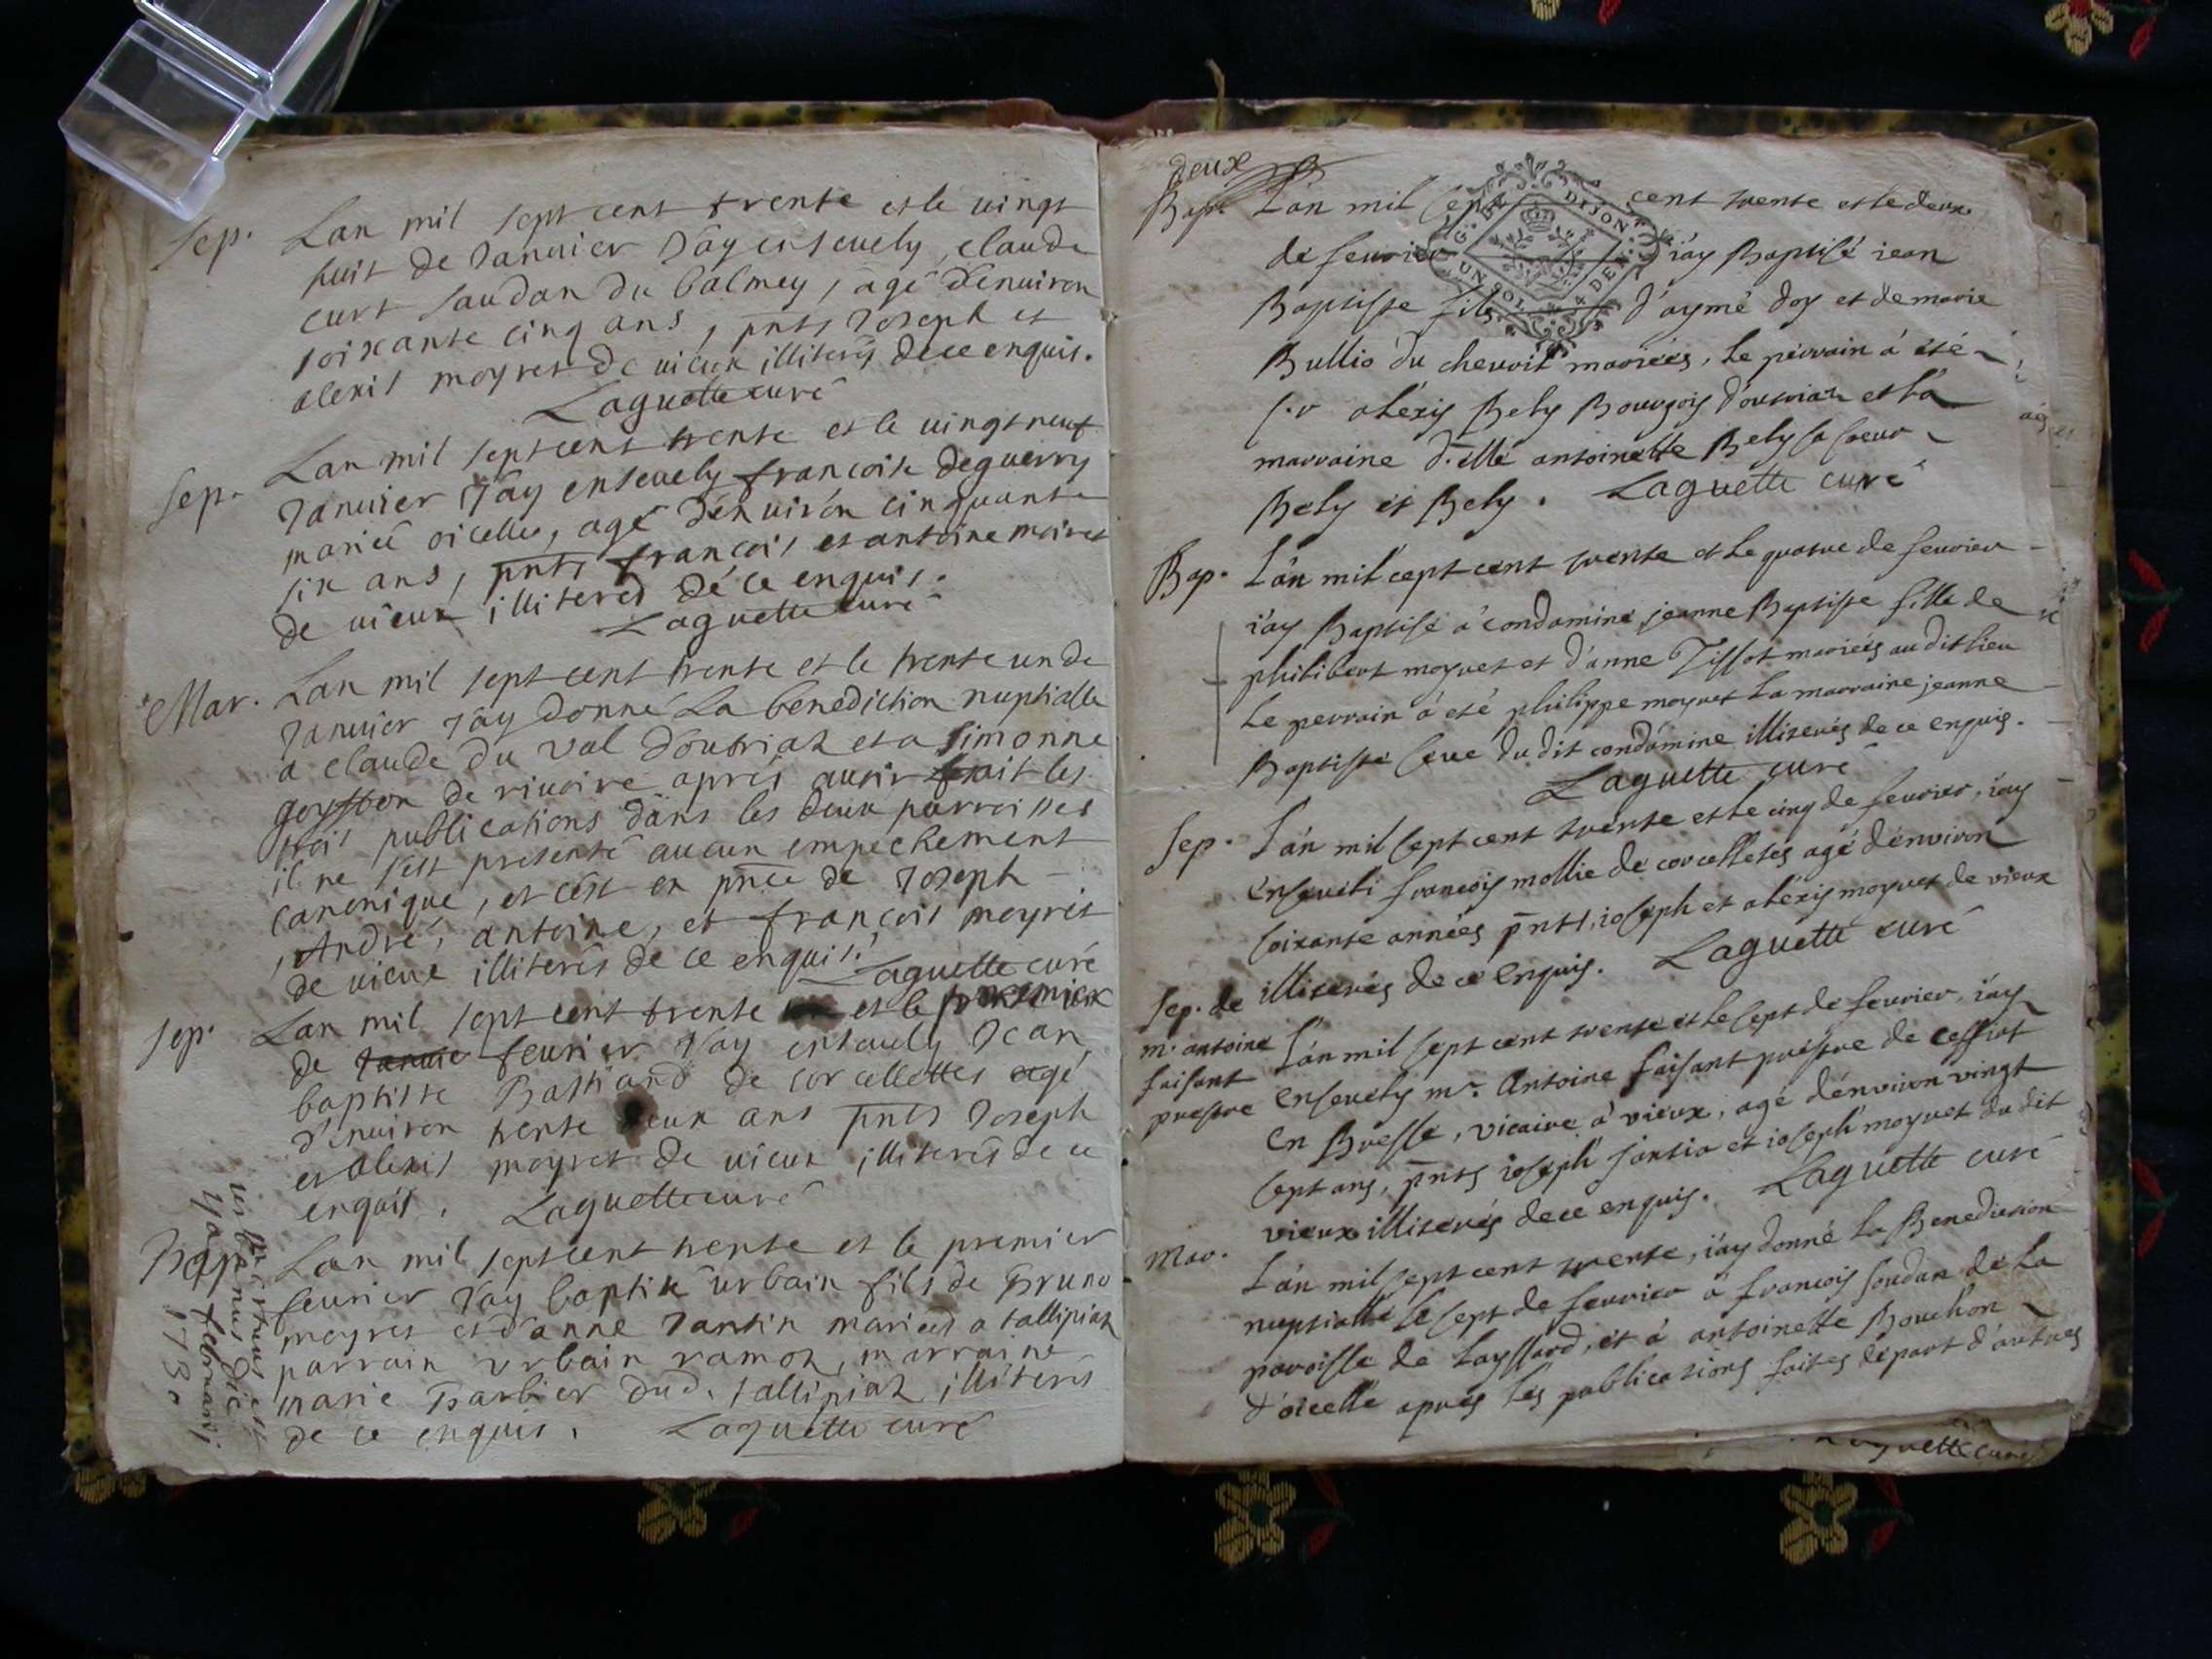 Sep. Lan mil sept cent trente et le vingt
huit de Januier J'ay enseuely, claude
curt saudan du balmey, agé d'enuiron
soixante cinq ans, pnts Joseph et
alexis moyret de uieux illiterés de ce enquis.
Laguette curé
Sep. Lan mil sept cent trente et le uingt neuf
Januier J'ay enseuely francoise deguerry
mariée oicelles, agé d'énuirón cinquante
six ans, pnts francois et antoine moiret
de uieux illiterés dé ce enquis.
Laguette curé
Mar. Lan mil sept cent trente et le trente un de
Januier J'ay donné La benediction nuptialle
a claude du val d'outriaz et a simonne
goyffon de riuoire aprés auoir fait les
trois publications dans les deux parroisses
il ne s'est presenté aucun empechement
canonique, et c'est en pnce de Joseph
, André, antoine, et francois moyret
de uieux illiterés de ce enquis.
Laguette curé
Sep. Lan mil sept cent trente et le premier
de Januie feurier J'ay enseuely Jean
baptiste Bastiand de corcellettes agé
d'enuiron trente deux ans pnts Joseph
et alexis moyret de uieux illiterés de ce
enquis, Laguette curé
Bap. Lan mil sept cent trente et le premier
feurier J'ay baptisé urbain fils de Bruno
moyret et d'anne Jantin mariés a tallipiaz
parrain urbain ramoz, marraine
marie Barbier dud. tallipiaz illiterés
de ce enquis, Laguette curé
februarij
1730
deux
Bap. L'án mil sept cent trente et le deux
de feurier i'áy Baptisé iean
Baptiste fils d'aymé doy et de marie
Bullio du cheuoit mariées, le pérrain á été
s.r aléxis Bely Bourgois d'outriaz et la
marraine d.elle antoinette Bely sa soeur
Bely et Bely. Laguette curé
Bap. L'án mil cept cent trente et le quatre de feurier
i'ay Baptisé á condamine jeanne Baptiste fille de
philibert moyret et d'anne Tissot mariés au dit lieu
le perrain á eté philippe moyret la marraine jeanne
Baptiste seue du dit condámine illiterés de ce enquis.
Laguette curé
Sep. L'án mil sept cent trente et le cinq de feurier, i'ay
enseueli francois mollie de corcelletes agé d'énviron
soixante années pnts, ioseph et aléxis moyret de vieux
illiterés de ce enquis. Laguette curé
Sep. de
m.r antoine
faisant
prestre
L'án mil sept cent trente et le sept de feurier, i'ay
enseuely m.r Antoine faisant préstre de ceffiat
en Bresse, vicaire á vieux, agé d'énviron vingt
sept ans, pnts ioseph jantia et ioseph moyret du dit
vieux illiterés de ce enquis. Laguette curé
Mar. L'án mil sept cent trente, i'ay donné la Benediction
nuptialle le sept de feurier á francois soudan de la
paroisse de layssard, et á antoinette Bouchon
d'oicelle aprés les publications faites dé part d'autres
Laguette curé
G. DE DIJON
UN SOL 4 DEN.